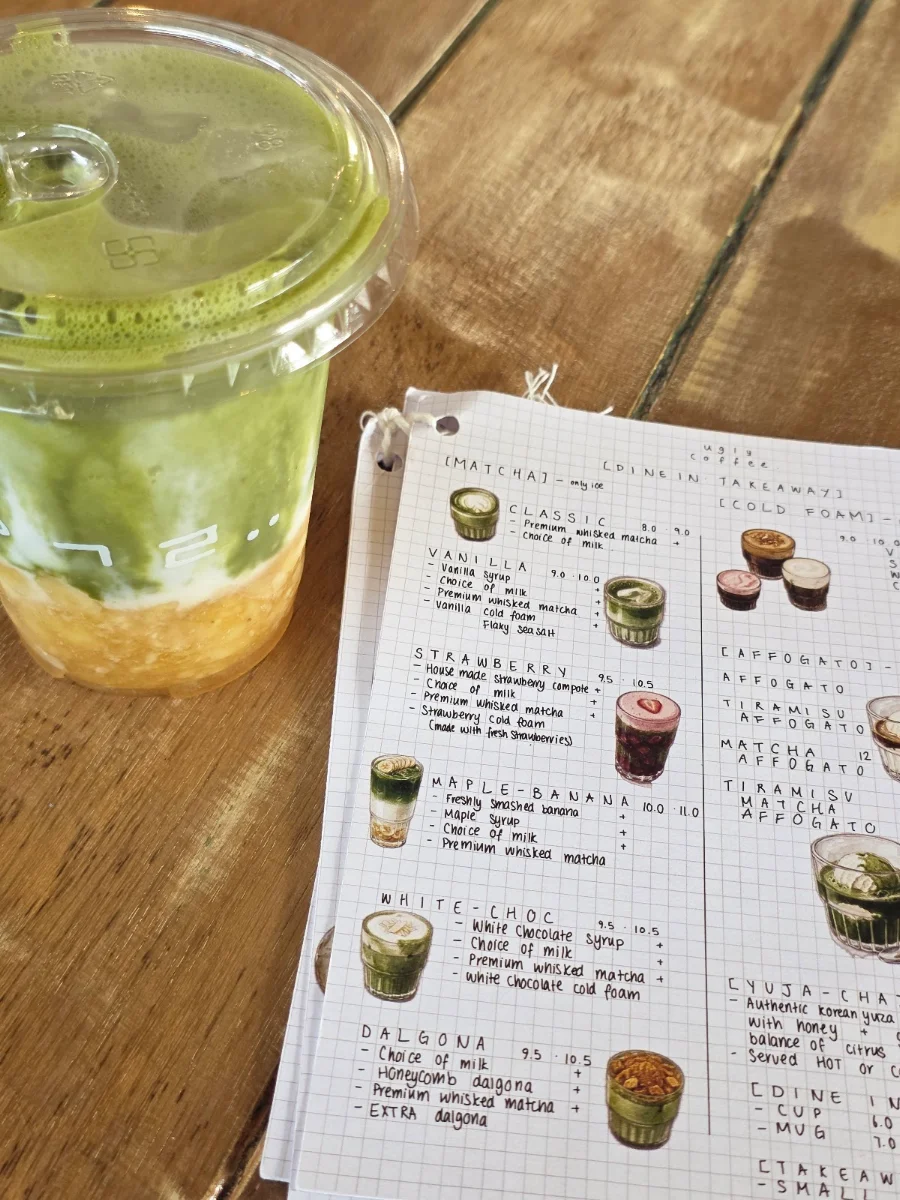 ugly
coffee
[DINE IN · TAKEAWAY]
[MATCHA] - only ice
CLASSIC 8.0 9.0
- Premium whisked matcha +
- Choice of milk
VANILLA 9.0 · 10.0
- Vanilla syrup +
- Choice of milk +
- Premium whisked matcha +
- Vanilla cold foam
Flaky seasalt
STRAWBERRY 9.5 · 10.5
- House made strawberry compote +
- Choice of milk +
- Premium whisked matcha +
- Strawberry cold foam
(made with fresh strawberries)
MAPLE-BANANA 10.0 · 11.0
- Freshly smashed banana +
- Maple syrup +
- Choice of milk +
- Premium whisked matcha
WHITE-CHOC 9.5 · 10.5
- White Chocolate syrup +
- Choice of milk +
- Premium whisked matcha +
- White chocolate cold foam
DALGONA 9.5 · 10.5
- Choice of milk +
- Honeycomb dalgona +
- Premium whisked matcha +
- EXTRA dalgona
[COLD FOAM] -
9.0 · 10.0
[AFFOGATO] -
AFFOGATO
TIRAMISU
AFFOGATO
MATCHA 12
AFFOGATO
TIRAMISU
MATCHA
AFFOGATO
[YUJA-CHA
- Authentic korean yuza
with honey +
balance of citrus
- Served HOT or
[DINE IN
- CUP 6.0
- MUG 7.0
[TAKEAW
- SMALL